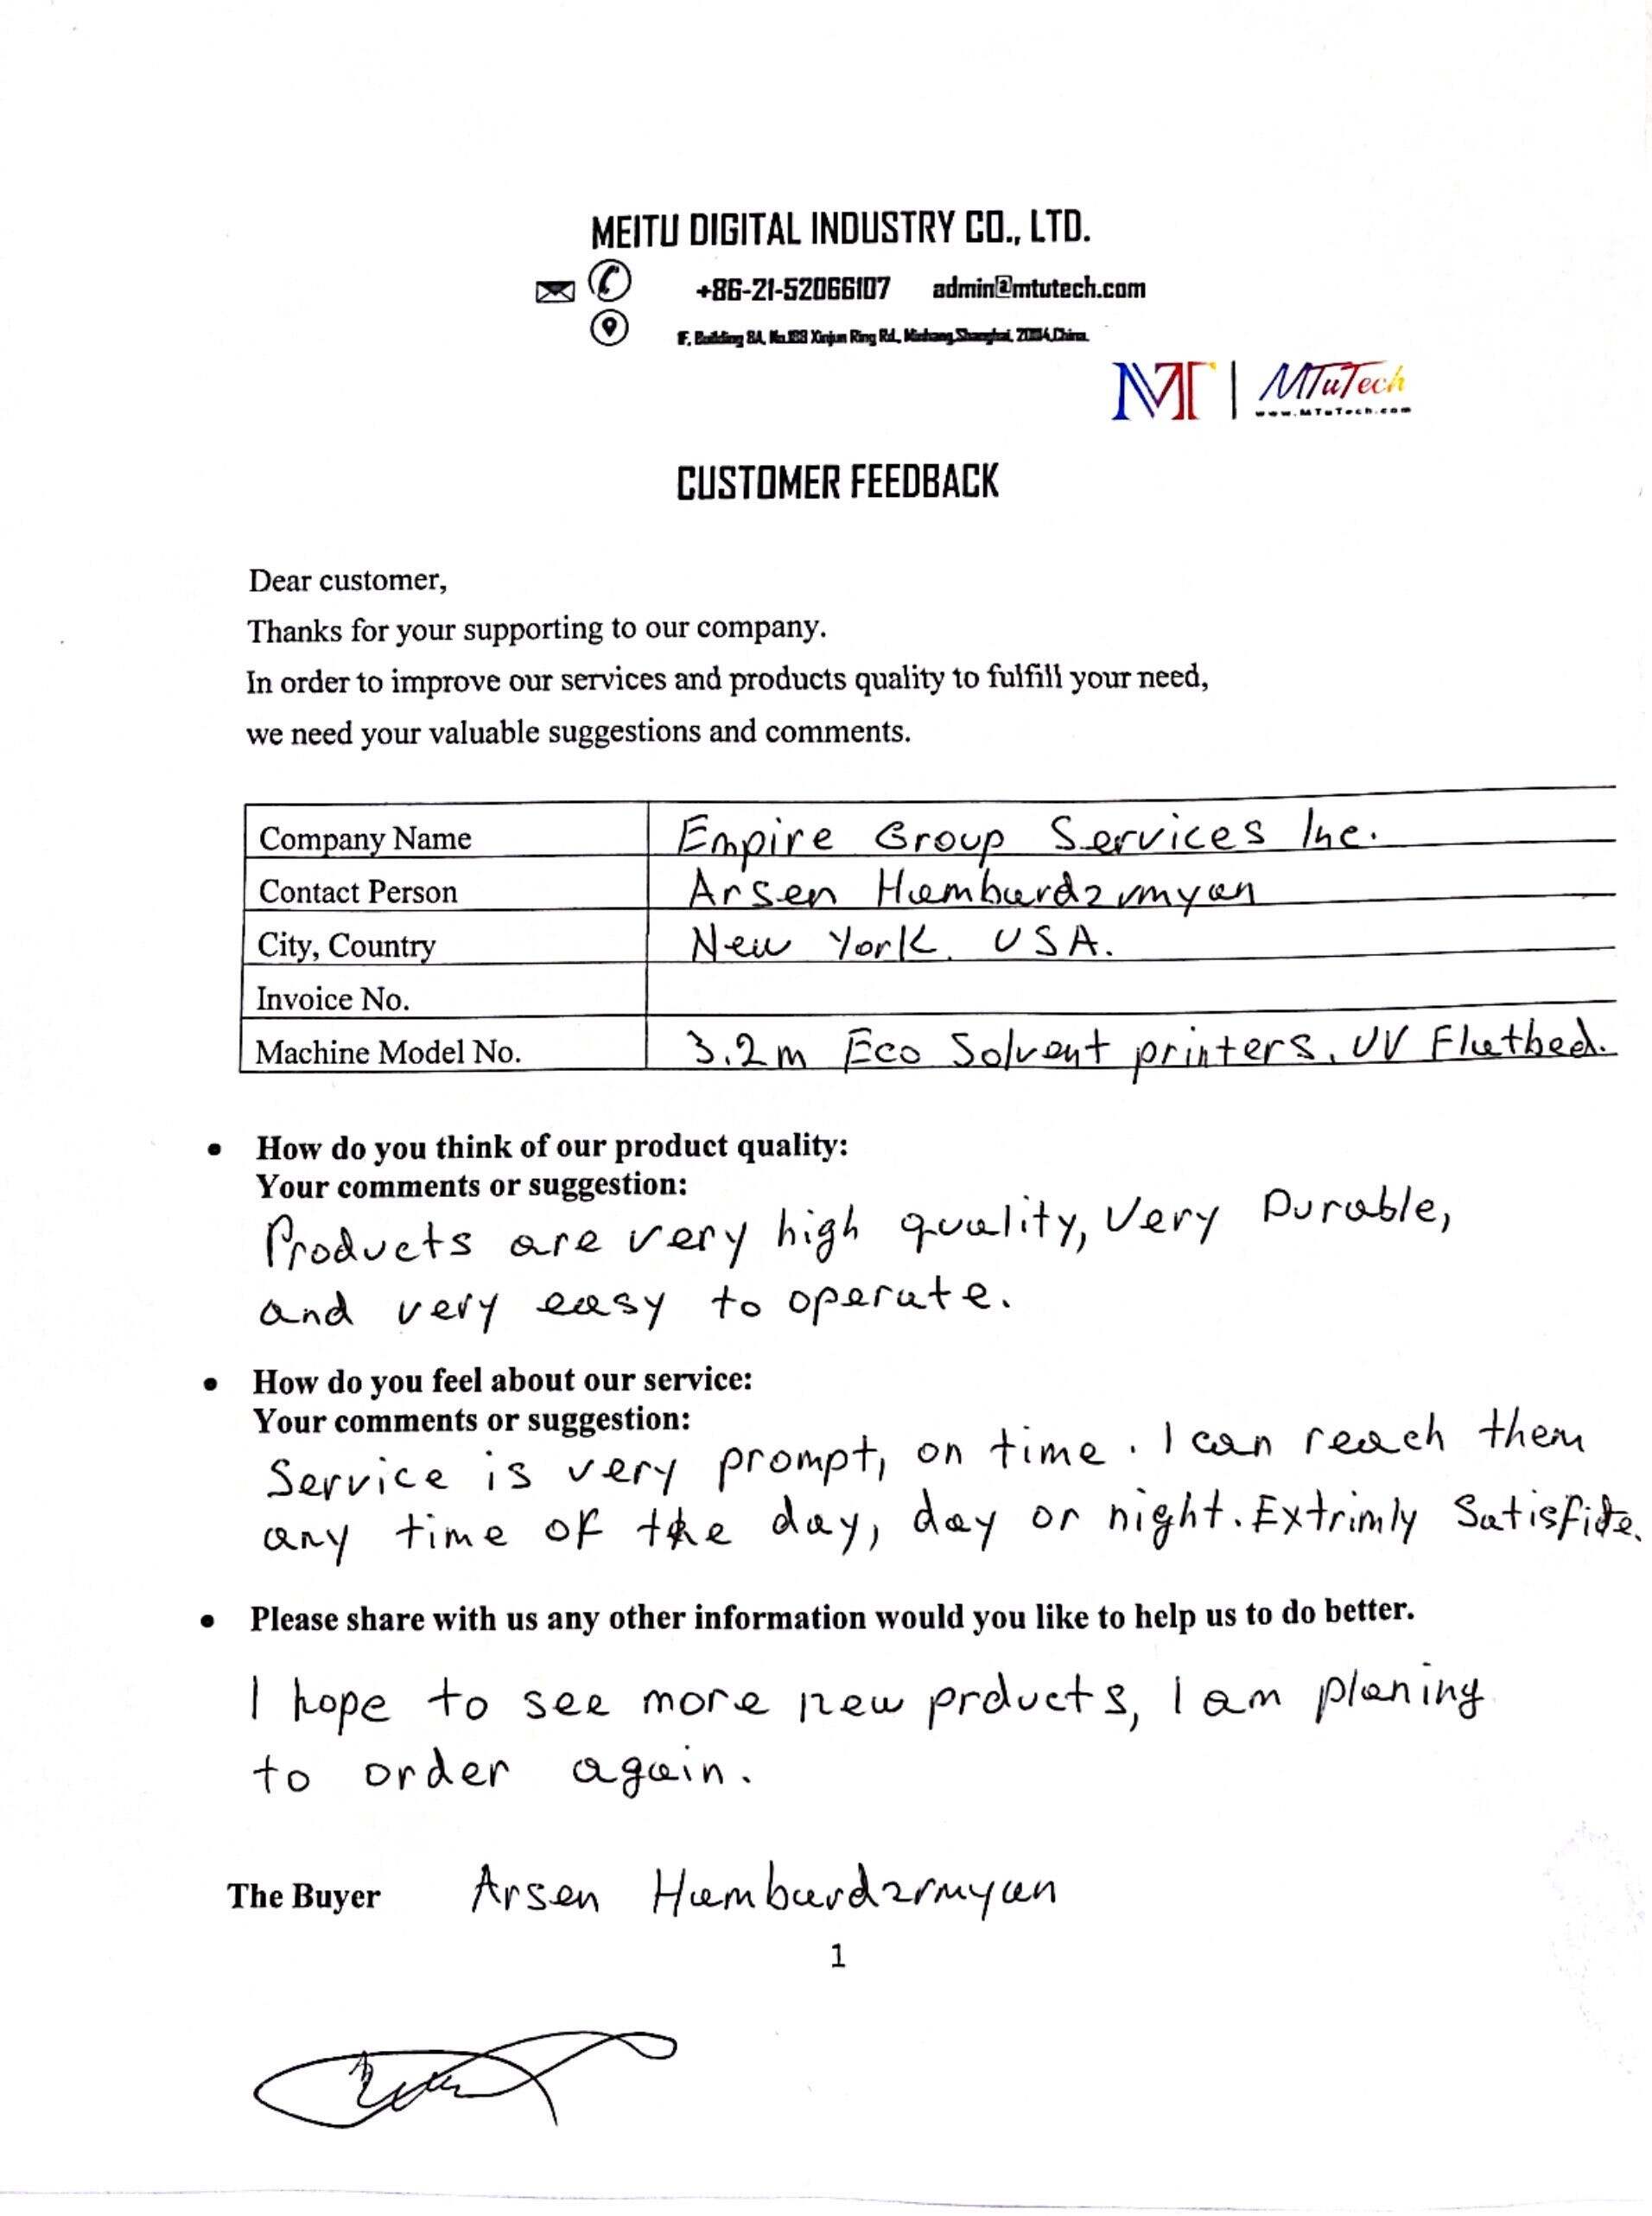 MEITU DIGITAL INDUSTRY CO., LTD.
+86-21-52066107 admin@mtutech.com
1F, Building 8A, No.188 Xinjun Ring Rd., Minhang, Shanghai, China.
MT | MTuTech
www.MTuTech.com
CUSTOMER FEEDBACK
Dear customer,
Thanks for your supporting to our company.
In order to improve our services and products quality to fulfill your need,
we need your valuable suggestions and comments.
Company Name Empire Group Services Inc.
Contact Person Arsen Hambardzumyan
City, Country New York. USA.
Invoice No.
Machine Model No. 3.2m Eco Solvent printers, UV Flatbed.
• How do you think of our product quality:
Your comments or suggestion:
Products are very high quality, Very Durable,
and very easy to operate.
• How do you feel about our service:
Your comments or suggestion:
Service is very prompt, on time. I can reach them
any time of the day, day or night. Extrimly Satisfide.
• Please share with us any other information would you like to help us to do better.
I hope to see more new prducts, I am planing
to order again.
The Buyer Arsen Hambardzrmyan
1